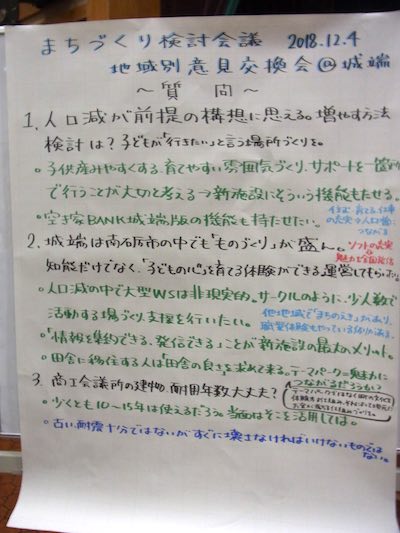 まちづくり検討会議 2018.12.4
地域別意見交換会@城端
～質 問～
1.人口減が前提の構想に思える。増やす方法
検討は？子どもが「行きたい」と言う場所づくりを。
○子供産みやすくする、育てやすい雰囲気づくり、サポートを一箇所
で行うことが大切と考える→新施設にそういう機能もたせる。
○空き家BANK城端版の機能も持たせたい。
住む、育てる、仕事
の充実→人口増に
つながる
2.城端は南砺市の中でも「ものづくり」が盛ん。
ソフトの充実
魅力を全国発信
知能だけでなく、「子どもの心」を育てる体験ができる運営してもらいたい。
○人口減の中で大型WSは非現実的。サークルのように、少人数で
活動する場づくり、支援を行いたい。
他地域で「まちのえき」があり、
職業体験もやっている例がある。
○「情報を集約できる、発信できる」ことが新施設の最大のメリット。
○田舎に移住する人は「田舎の良さ」を求めて来る。テーマパーク=魅力に
つながるだろうか？
テーマパークではなく
3.商工会議所の建物 耐用年数大丈夫？
○少くとも10～15年は使えるだろう。当面はそこを活用しては。
○古い、耐震十分ではないが、すぐに壊さなければいけないものでは
ない。